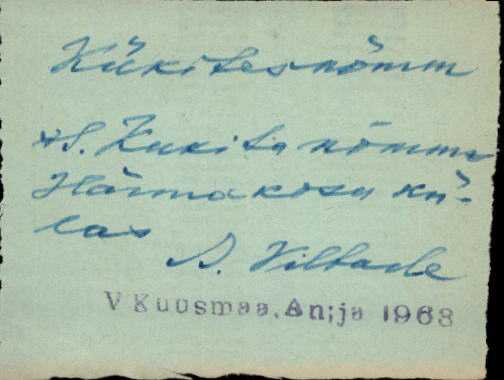 Kükitesnõmm
s. Kukita nõmm
Härmakosu kü-
las
A. Viltade
V Kuusmaa. An;ja 1968